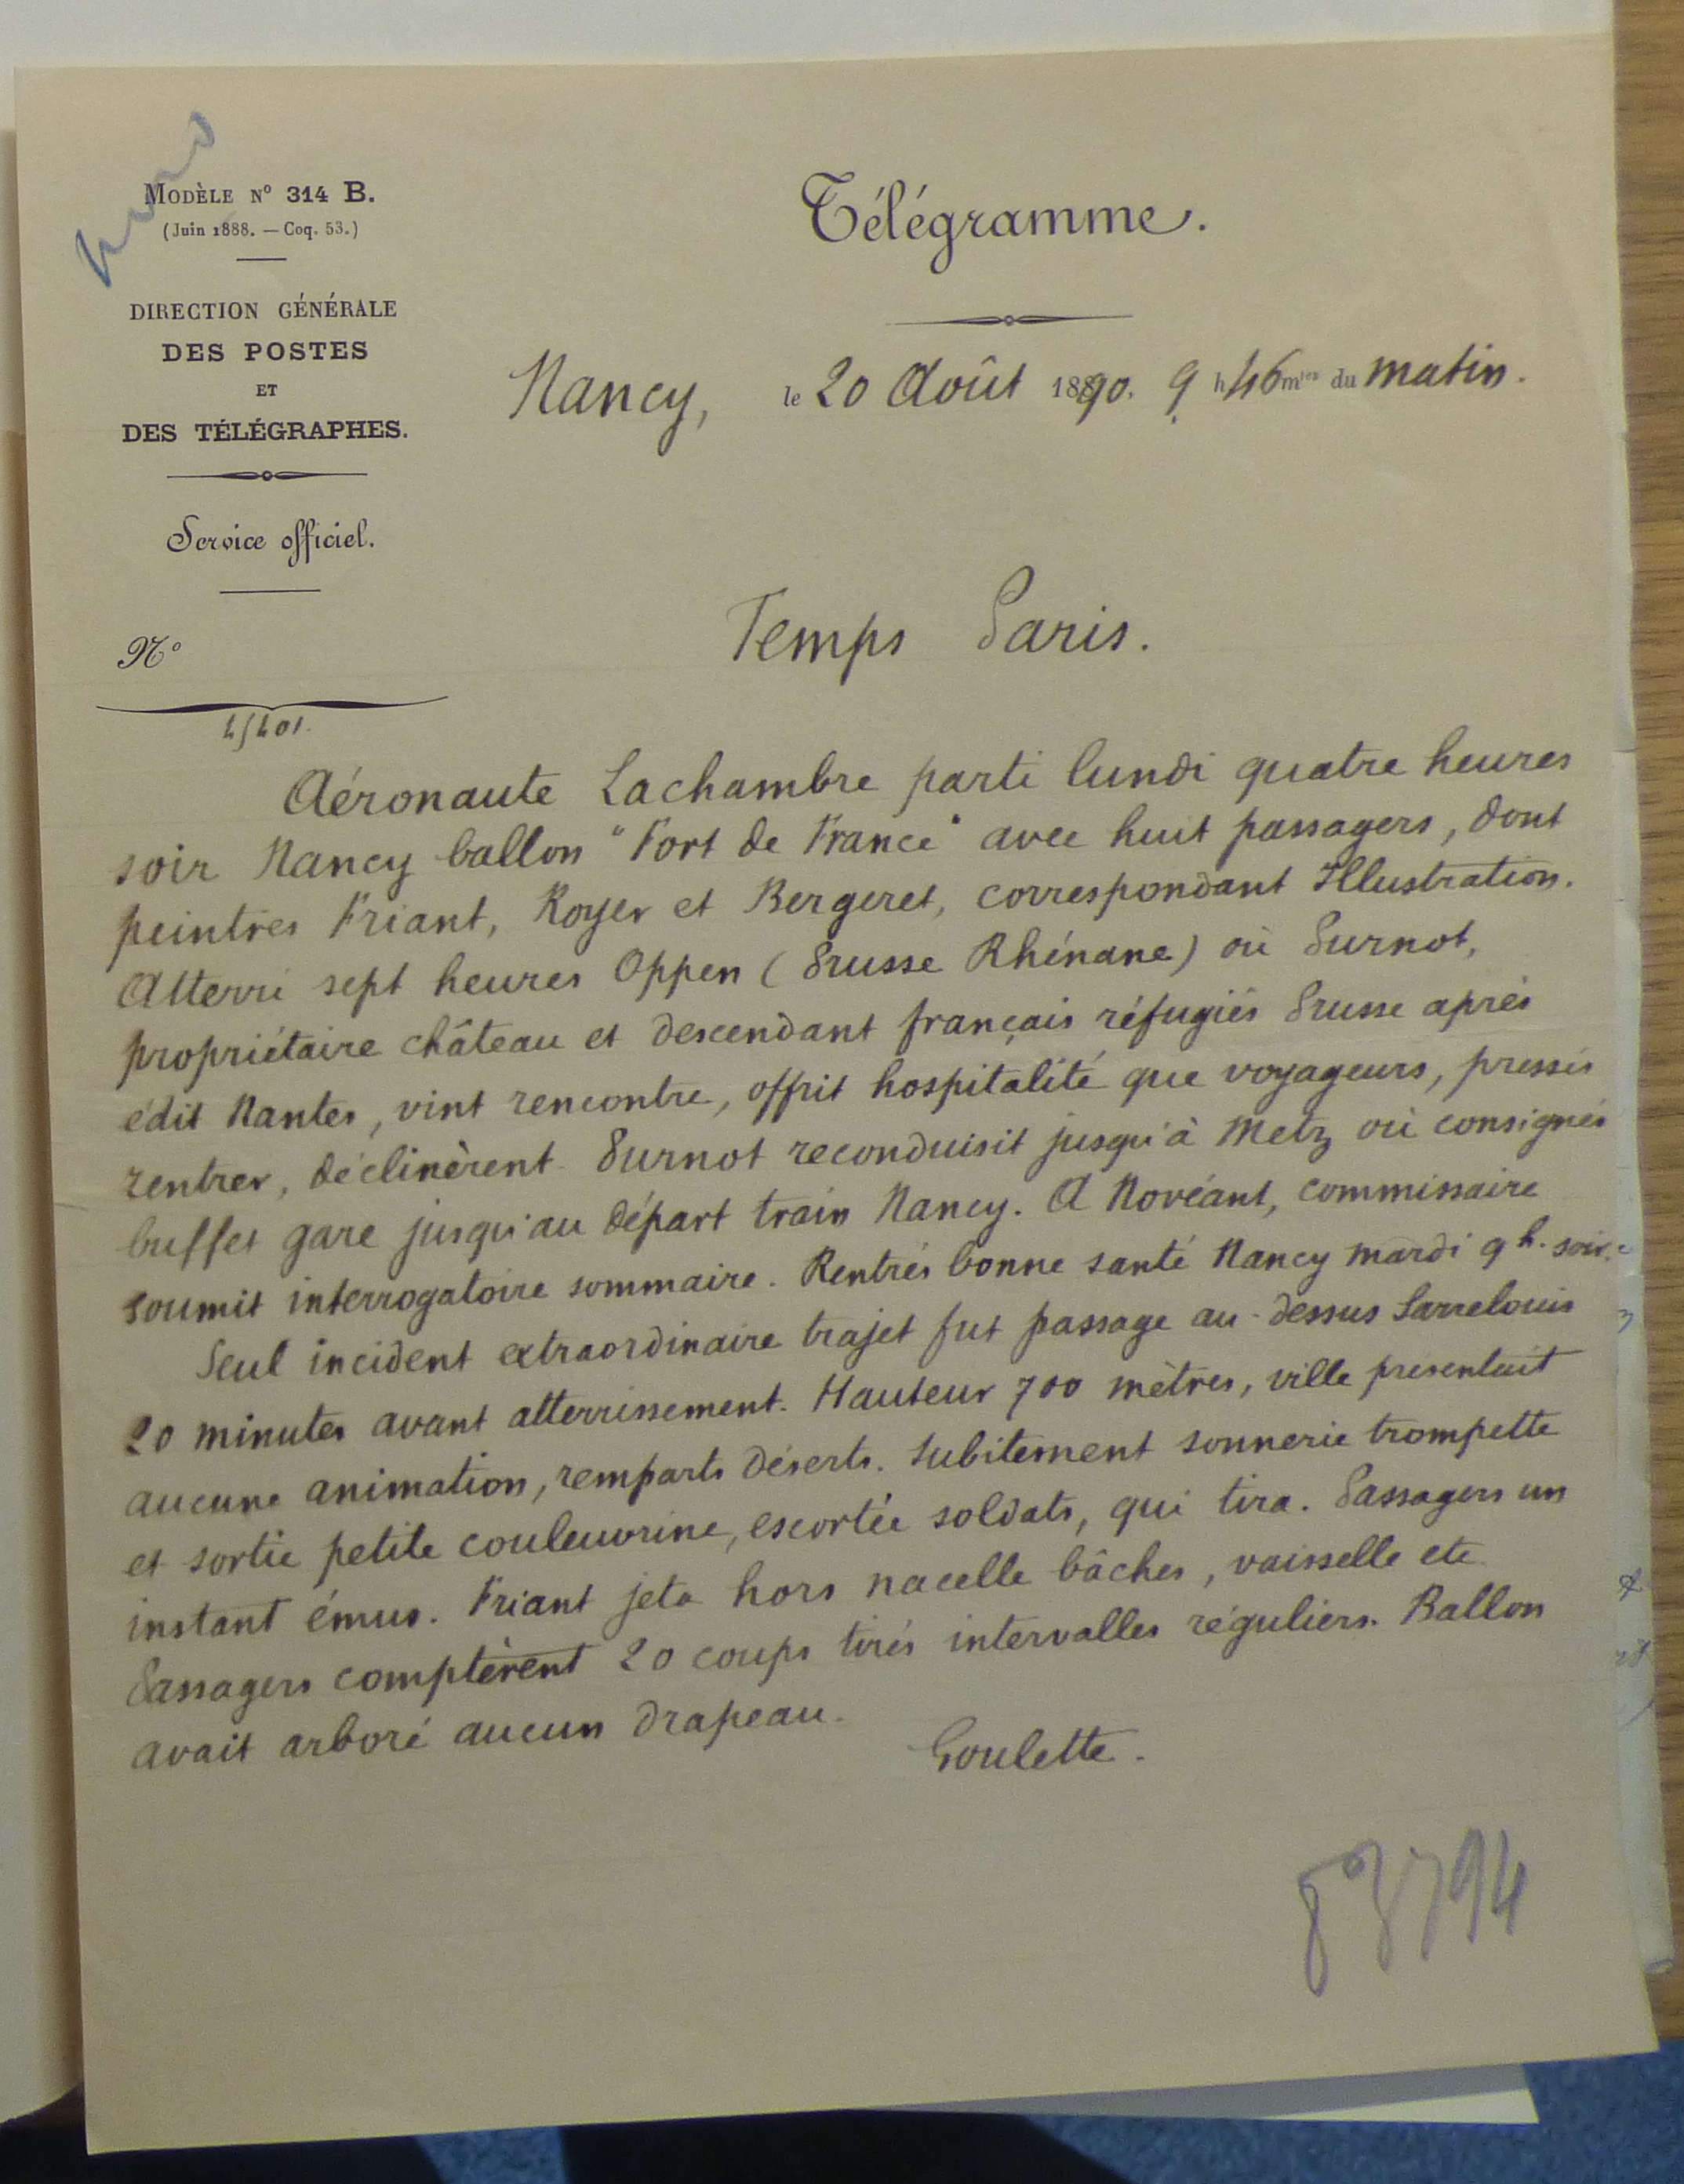 Modèle N° 314 B.
(Juin 1888. — Coq. 53.)
DIRECTION GÉNÉRALE
DES POSTES
ET
DES TÉLÉGRAPHES.
Service officiel.
N°
Télégramme.
Nancy, le 20 Août 1890. 9 h 46 mtes du matin.
Temps Paris.
Aéronaute Lachambre parti lundi quatre heures
soir Nancy ballon "Fort de France" avec huit passagers, dont
peintres Friant, Royer et Bergeret, correspondant Illustration.
Atterri sept heures Oppen (Prusse Rhénane) où Purnot,
propriétaire château et descendant français réfugiés Prusse après
édit Nantes, vint rencontre, offrit hospitalité que voyageurs, pressés
rentrer, déclinèrent. Purnot reconduisit jusqu'à Metz où consignés
buffet gare jusqu'au départ train Nancy. A Novéant, commissaire
soumit interrogatoire sommaire. Rentrés bonne santé Nancy mardi 9 h. soir.
Seul incident extraordinaire trajet fut passage au-dessus Sarrelouis
20 minutes avant atterrissement. Hauteur 700 mètres, ville présentait
aucune animation, remparts déserts. Subitement sonnerie trompette
et sortie petite couleuvrine, escortée soldats, qui tira. Passagers un
instant émus. Friant jeta hors nacelle bâches, vaisselle etc.
Passagers comptèrent 20 coups tirés intervalles réguliers. Ballon
avait arboré aucun drapeau.
Goulette.
83794